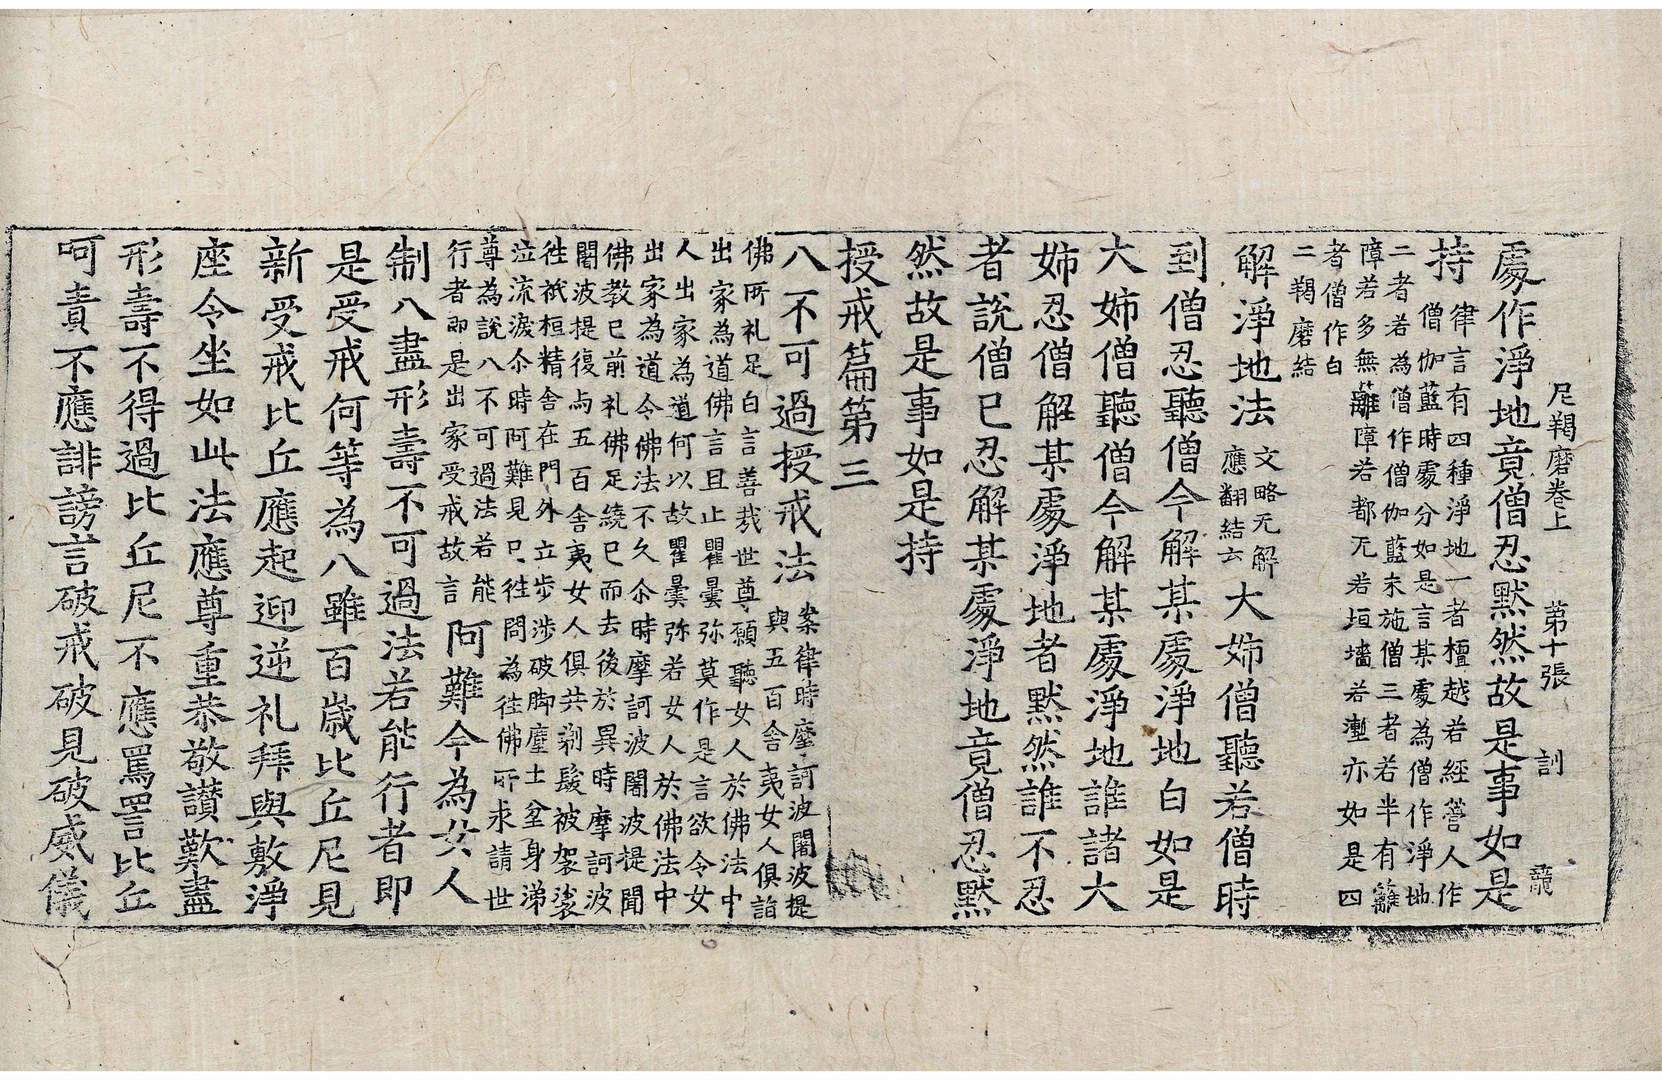 尼羯磨卷上 第十張 訓
處作淨地竟僧忍默然故是事如是
持
律言有四種淨地一者檀越若經營人作
僧伽藍時處分如是言某處為僧作淨地
二者若為僧作僧伽藍未施僧三者若半有籬
障若多無籬障若都无若垣墻若塹亦如是四
者僧作白
二羯磨結
解淨地法 文略无解 應翻結云 大姉僧聽若僧時
到僧忍聽僧今解某處淨地白如是
大姉僧聽僧今解某處淨地誰諸大
姉忍僧解某處淨地者默然誰不忍
者說僧已忍解某處淨地竟僧忍默
然故是事如是持
授戒篇第三
八不可過授戒法 案律時摩訶波闍波提 與五百舍夷女人俱詣
佛所礼足白言善哉世尊願聽女人於佛法中
出家為道佛言且止瞿曇弥莫作是言欲令女
人出家為道何以故瞿曇弥若女人於佛法中
出家為道令佛法不久尒時摩訶波闍波提聞
佛教已前礼佛足繞已而去後於異時摩訶波
闍波提復与五百舍夷女人俱共剃髮被袈裟
徃祇桓精舍在門外立步涉破脚塵土坌身涕
泣流淚尒時阿難見已徃問為徃佛所求請世
尊為說八不可過法若能
行者即是出家受戒故言
阿難今為女人
制八盡形壽不可過法若能行者即
是受戒何等為八雖百歲比丘尼見
新受戒比丘應起迎逆礼拜與敷淨
座令坐如此法應尊重恭敬讃歎盡
形壽不得過比丘尼不應罵詈比丘
呵責不應誹謗言破戒破見破威儀